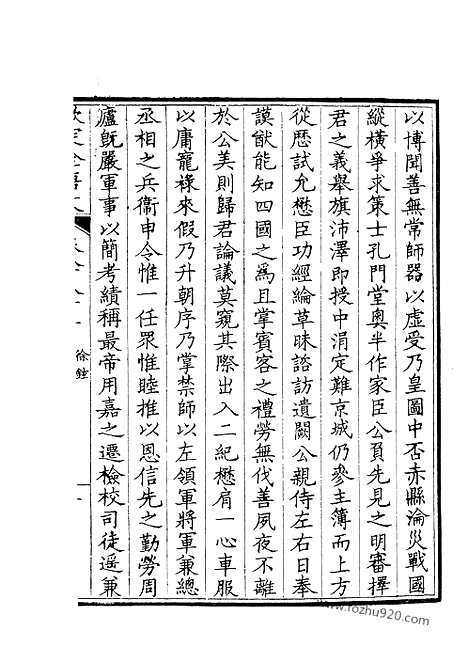 以博聞善無常師器以虛受乃皇圖中否赤縣淪災戰國
縱橫爭求策士孔門堂奧半作家臣公負先見之明審擇
君之義舉旗沛澤即授中涓定難京城仍參主簿而上方
從歷試允懋臣功經綸草昧諮訪遺闕公親侍左右日奉
謨猷能知四國之為且掌賓客之禮勞無伐善夙夜不離
於公美則歸君論議莫窺其際出入二紀懋肩一心車服
以庸寵祿來假乃升朝序乃掌禁師以左領軍將軍兼總
丞相之兵衞申令惟一任眾惟睦推以恩信先之勤勞周
廬既嚴軍事以簡考績稱最帝用嘉之遷檢校司徒遥兼
欽定全唐文
徐鉉
www.rozhu920.com